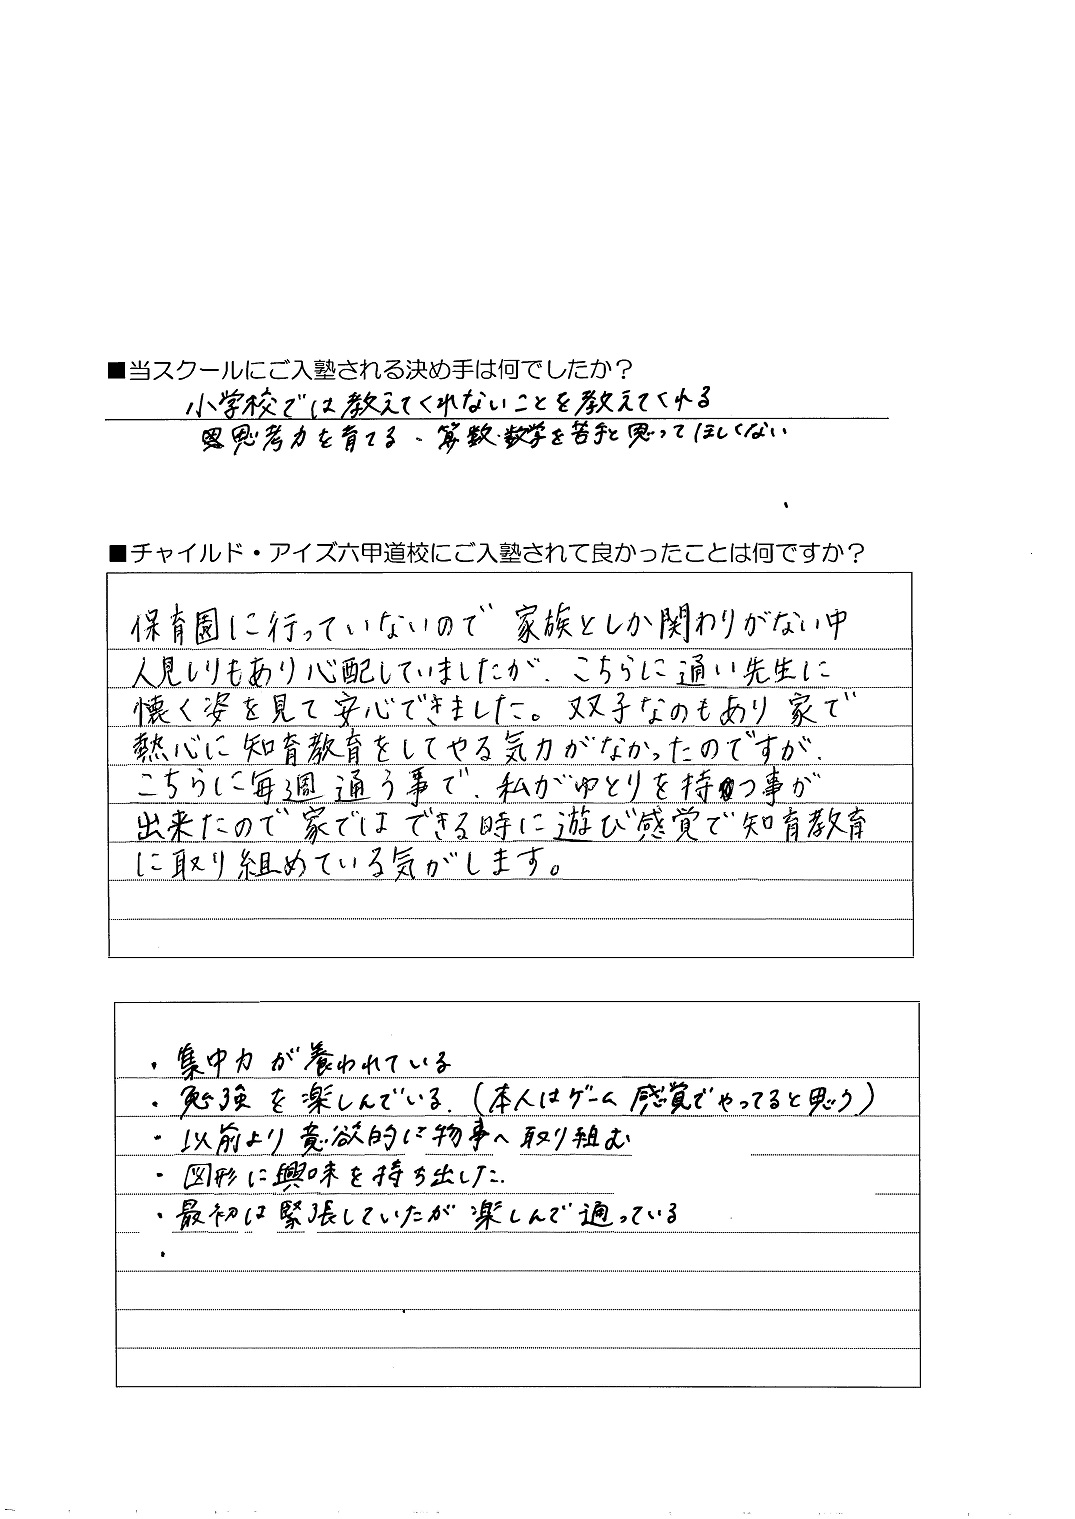 ■当スクールにご入塾される決め手は何でしたか？
小学校では教えてくれないことを教えてくれる
思考力を育てる、算数・数学を苦手と思ってほしくない
■チャイルド・アイズ六甲道校にご入塾されて良かったことは何ですか？
保育園に行っていないので 家族としか関わりがない中
人見しりもあり心配していましたが、こちらに通い先生に
懐く姿を見て安心できました。双子なのもあり家で
熱心に知育教育をしてやる気力がなかったのですが、
こちらに毎週通う事で、私がゆとりを持つ事が
出来たので家ではできる時に遊び感覚で知育教育
に取り組めている気がします。
・集中力が養われている
・勉強を楽しんでいる。（本人はゲーム感覚でやってると思う）
・以前より意欲的に物事へ取り組む
・図形に興味を持ち出した。
・最初は緊張していたが楽しんで通っている
・